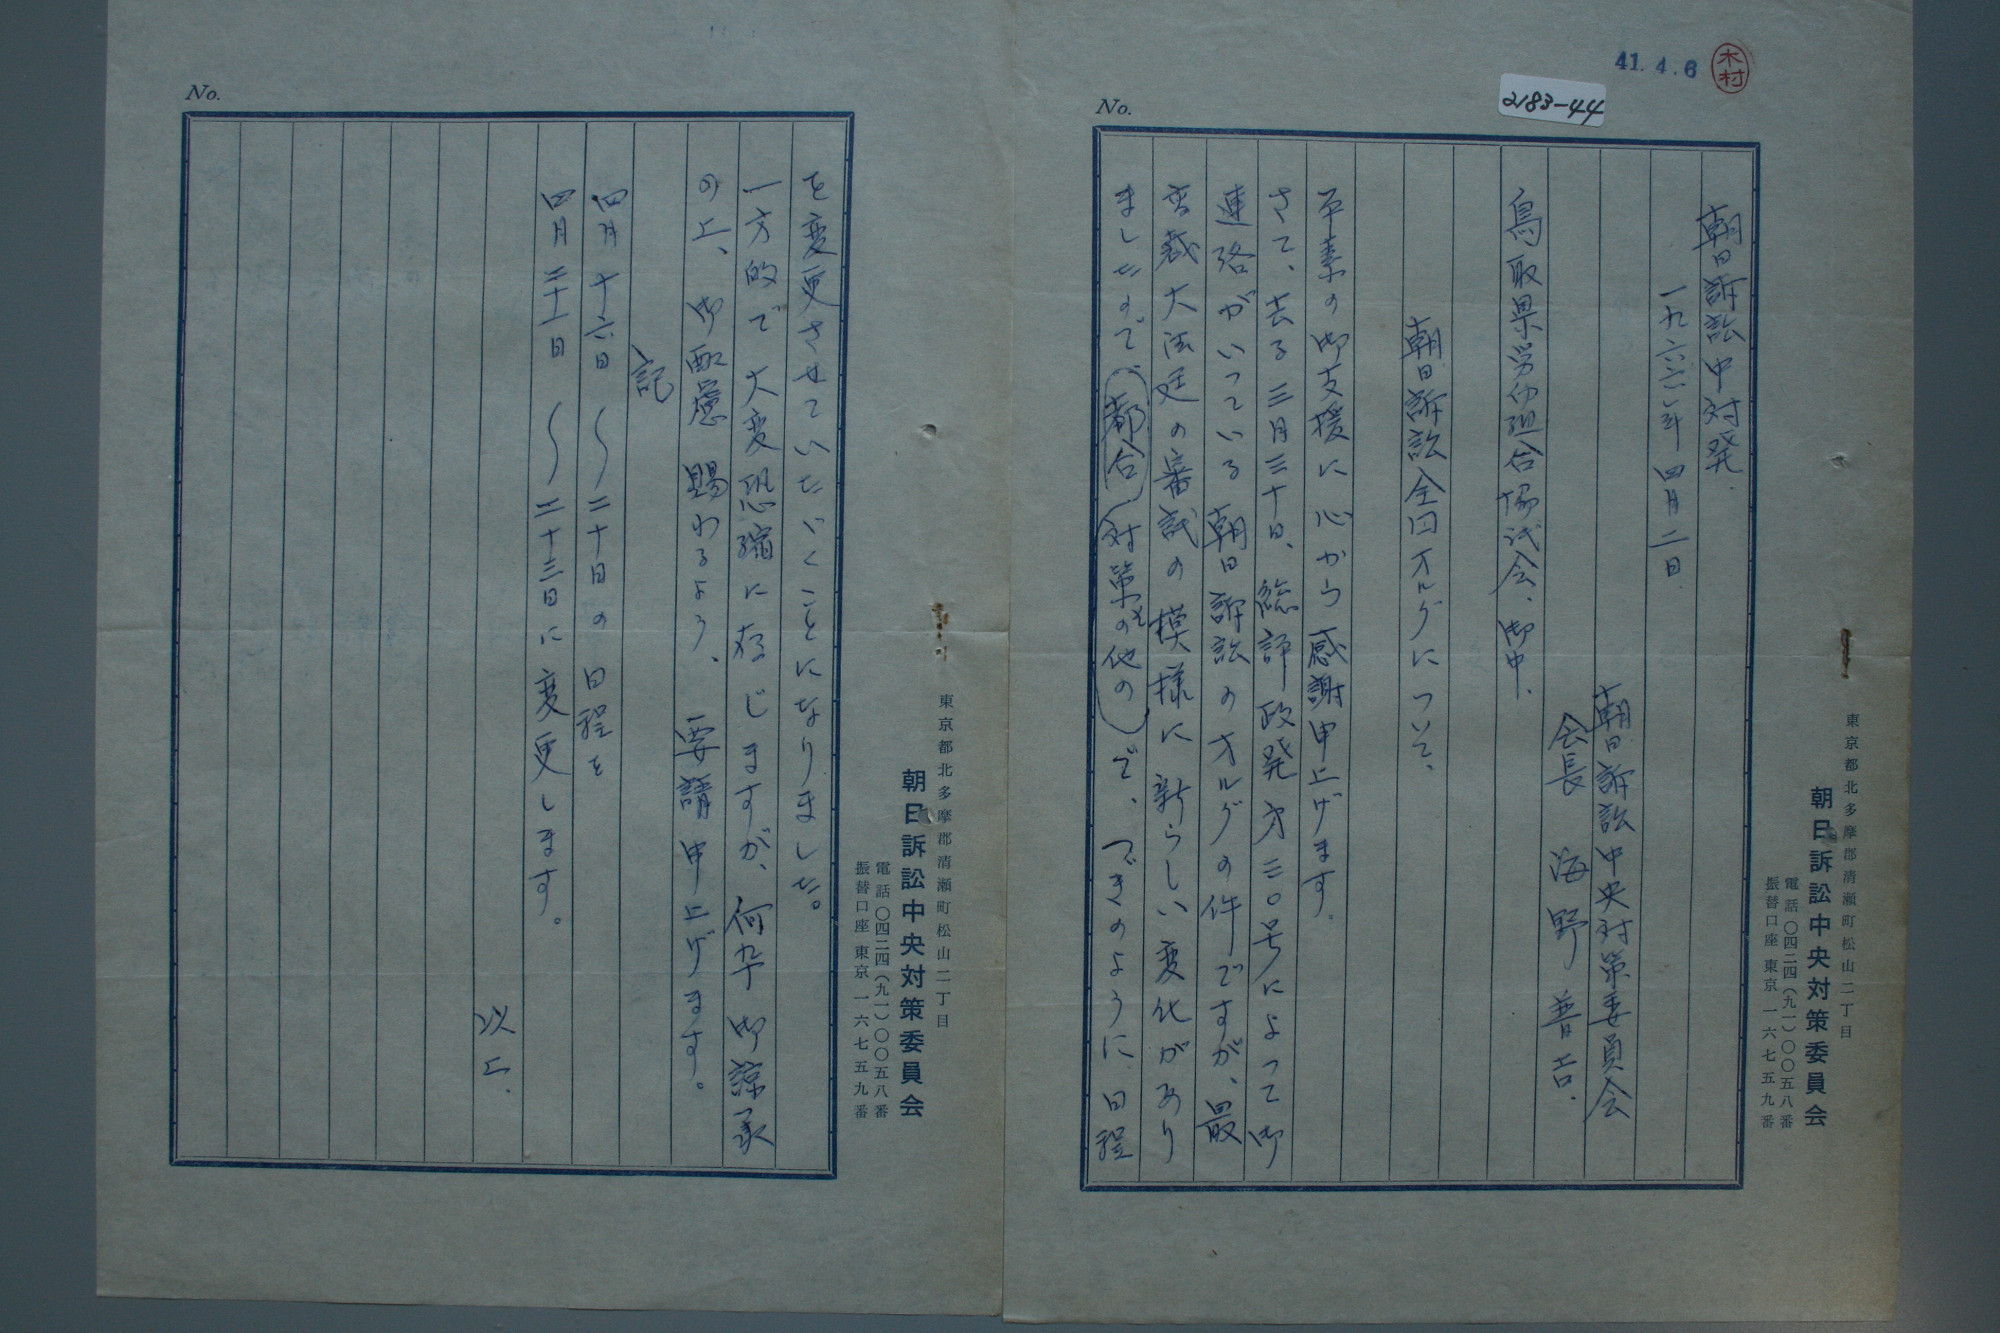 41.4.6
木村
2183-44
No.
朝日訴訟中対発
一九六六年四月二日.
朝日訴訟中央対策委員会
会長 海野普吉.
鳥取県労仂組合協議会、御中.
朝日訴訟全国オルグについて、
平素の御支援に心から感謝申上げます.
さて、去る三月三十日、総評政発才三〇号によって御
連絡がいっている朝日訴訟のオルグの件ですが、最
高裁大法廷の審議の模様に新らしい変化があり
ましたので、都合(対策その他の)で、つぎのように、日程
東京都北多摩郡清瀬町松山二丁目
朝日訴訟中央対策委員会
電話〇四二四(九一)〇〇五八番
振替口座 東京 一六七五九番
No.
を変更させていたゞくことになりました。
一方的で大変恐縮に存じますが、何卒御諒承
の上、御配慮賜わるよう、要請申上げます。
記
四月十六日〜二十日の日程を
四月二十一日〜二十三日に変更します。
以上.
東京都北多摩郡清瀬町松山二丁目
朝日訴訟中央対策委員会
電話〇四二四(九一)〇〇五八番
振替口座 東京 一六七五九番